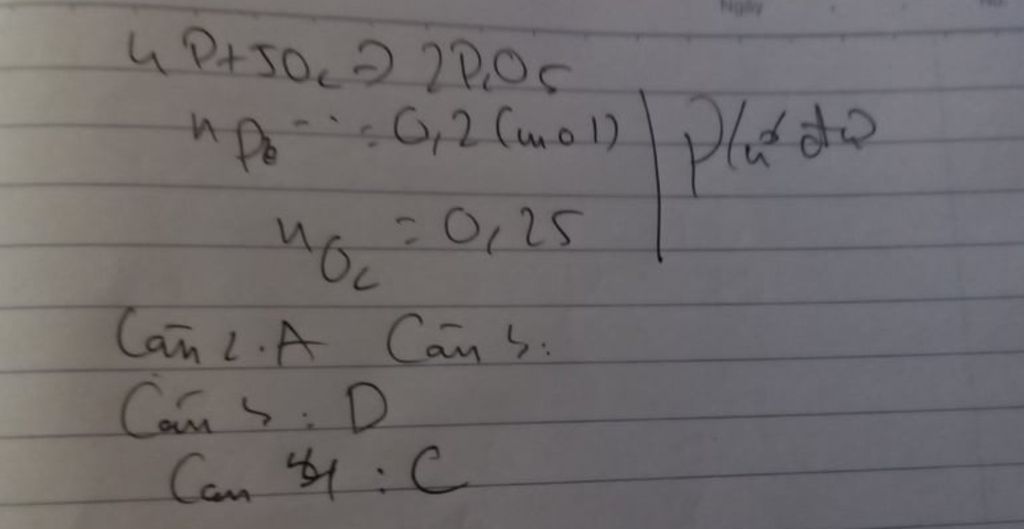 Ngày
4P+5O₂ → 2P₂O₅
n P = 0,2 (mol) | P/ư đủ
n O₂ = 0,25
Câu 2. A Câu 3:
Câu 3: D
Câu 4: C